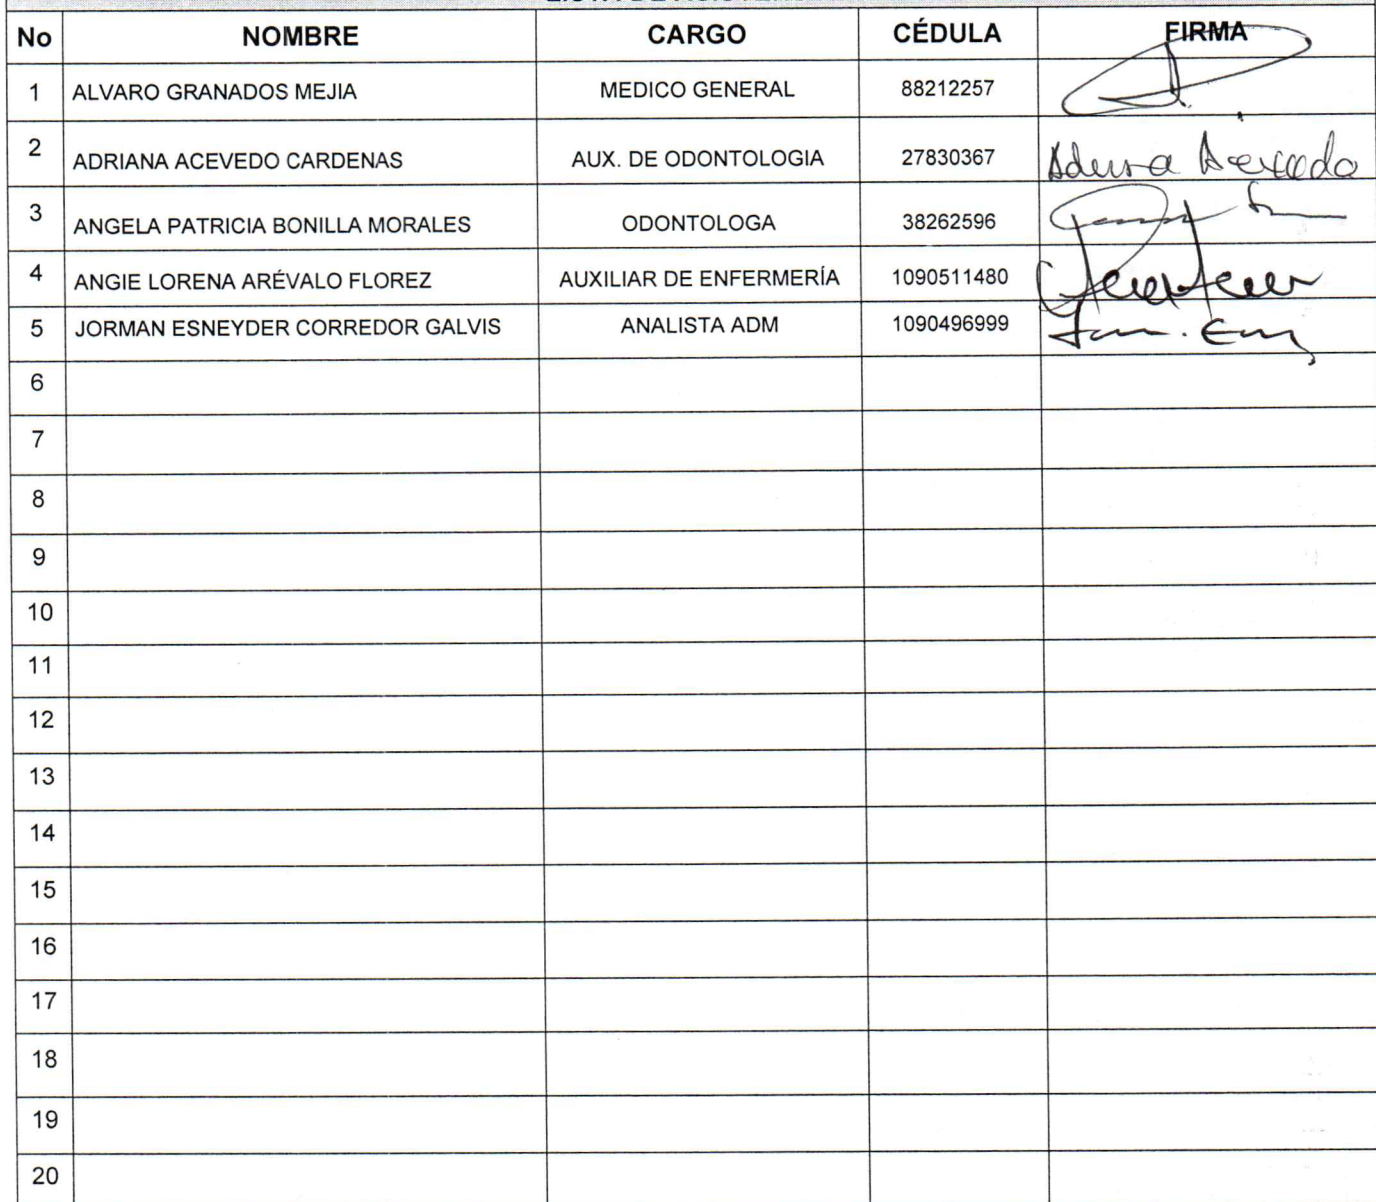 No NOMBRE CARGO CÉDULA FIRMA
1 ALVARO GRANADOS MEJIA MEDICO GENERAL 88212257
2 ADRIANA ACEVEDO CARDENAS AUX. DE ODONTOLOGIA 27830367
3 ANGELA PATRICIA BONILLA MORALES ODONTOLOGA 38262596
4 ANGIE LORENA ARÉVALO FLOREZ AUXILIAR DE ENFERMERÍA 1090511480
5 JORMAN ESNEYDER CORREDOR GALVIS ANALISTA ADM 1090496999
6
7
8
9
10
11
12
13
14
15
16
17
18
19
20